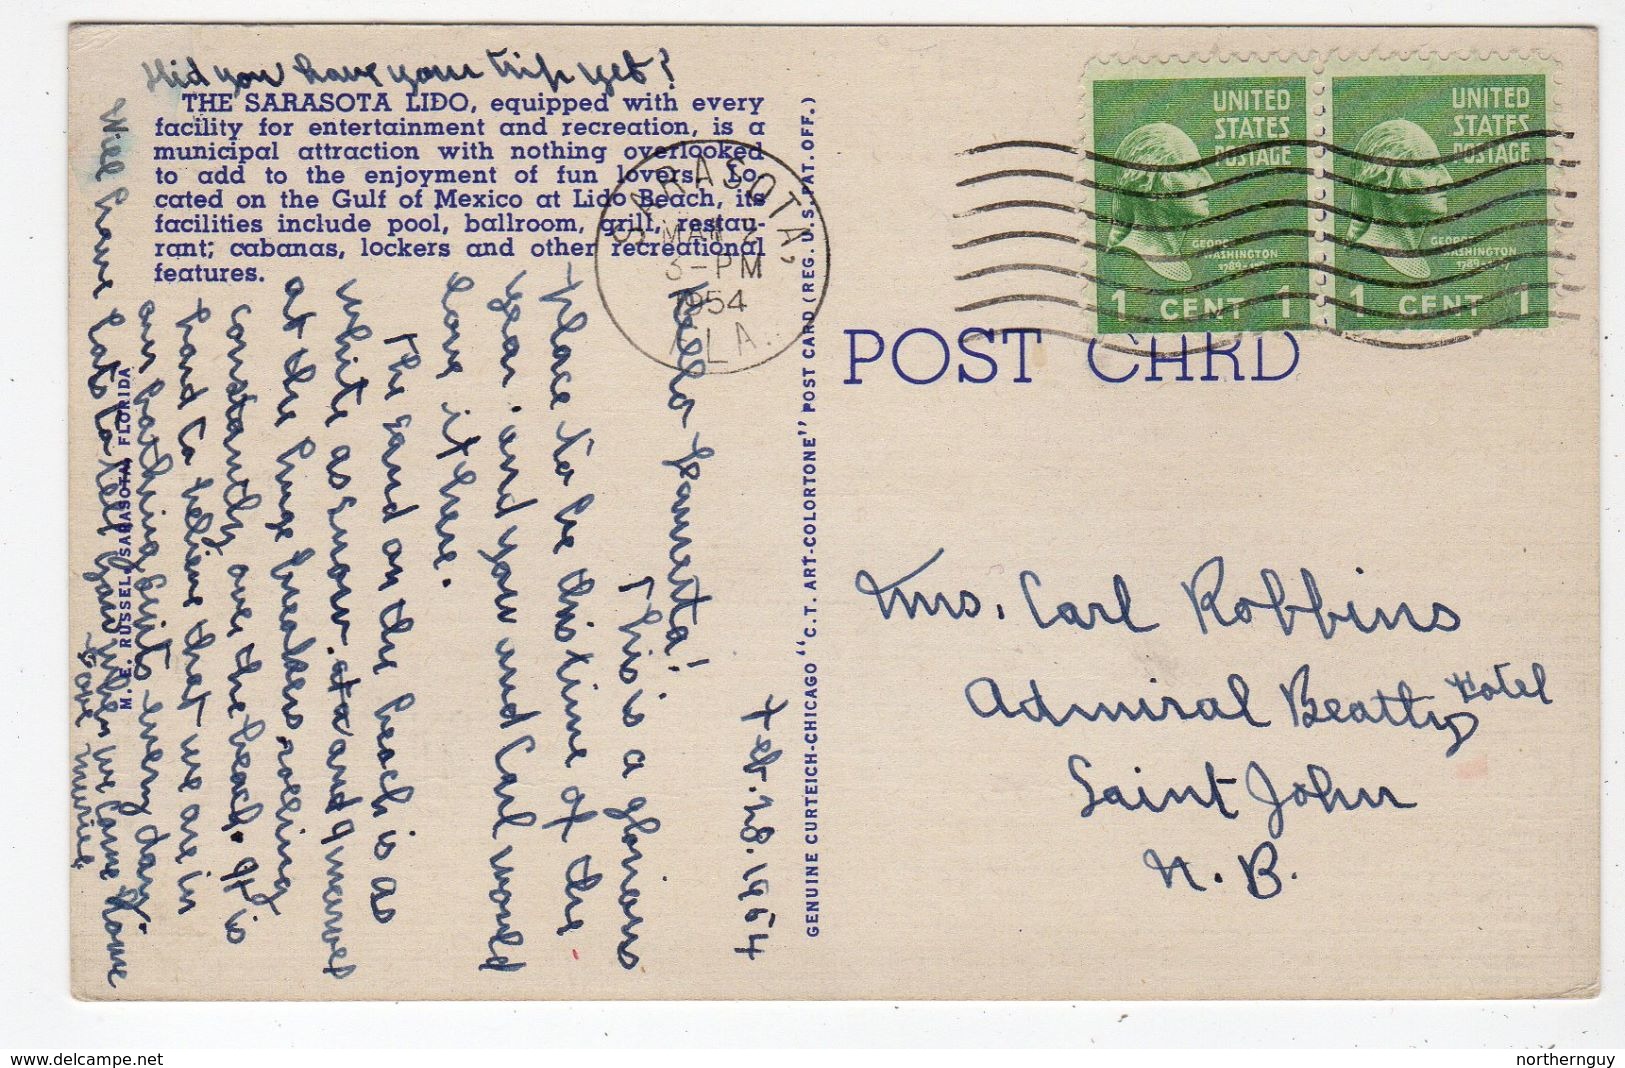 Did you have your trip yet?
THE SARASOTA LIDO, equipped with every
facility for entertainment and recreation, is a
municipal attraction with nothing overlooked
to add to the enjoyment of fun lovers. Lo-
cated on the Gulf of Mexico at Lido Beach, its
facilities include pool, ballroom, grill, restau-
rant; cabanas, lockers and other recreational
features.
Feb. 28. 1954
Hello Juanita!
This is a glorious
place to be this time of the
year. and you and Carl would
love it here.
The sand on the beach is as
white as snow. and marvel
at the huge breakers rolling
constantly over the beach. It is
hard to believe that we are in
our bathing suits every day.
Will have lots to tell you when we come home
Love Murie
M. E. RUSSELL, SARASOTA, FLORIDA
GENUINE CURTEICH-CHICAGO "C. T. ART-COLORTONE" POST CARD (REG. U. S. PAT. OFF.)
SARASOTA,
MAR 2
3-PM
1954
FLA.
UNITED
STATES
POSTAGE
GEORGE
WASHINGTON
1789-1797
1 CENT 1
UNITED
STATES
POSTAGE
GEORGE
WASHINGTON
1789-1797
1 CENT 1
POST CARD
Mrs. Carl Robbins
Admiral Beatty Hotel
Saint John
N. B.
www.delcampe.net
northernguy